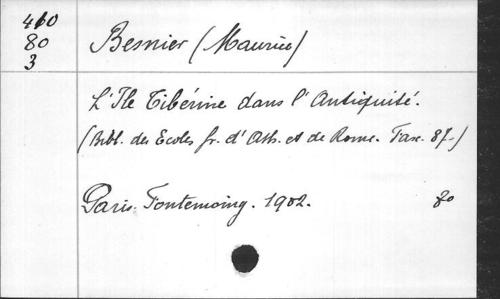 460
80
3
Besnier (Maurice)
L'Ile Tibérine dans l'Antiquité.
(Bibl. des Ecoles fr. d'Ath. et de Rome. Fasc. 87)
Paris. Fontemoing. 1902. 8o